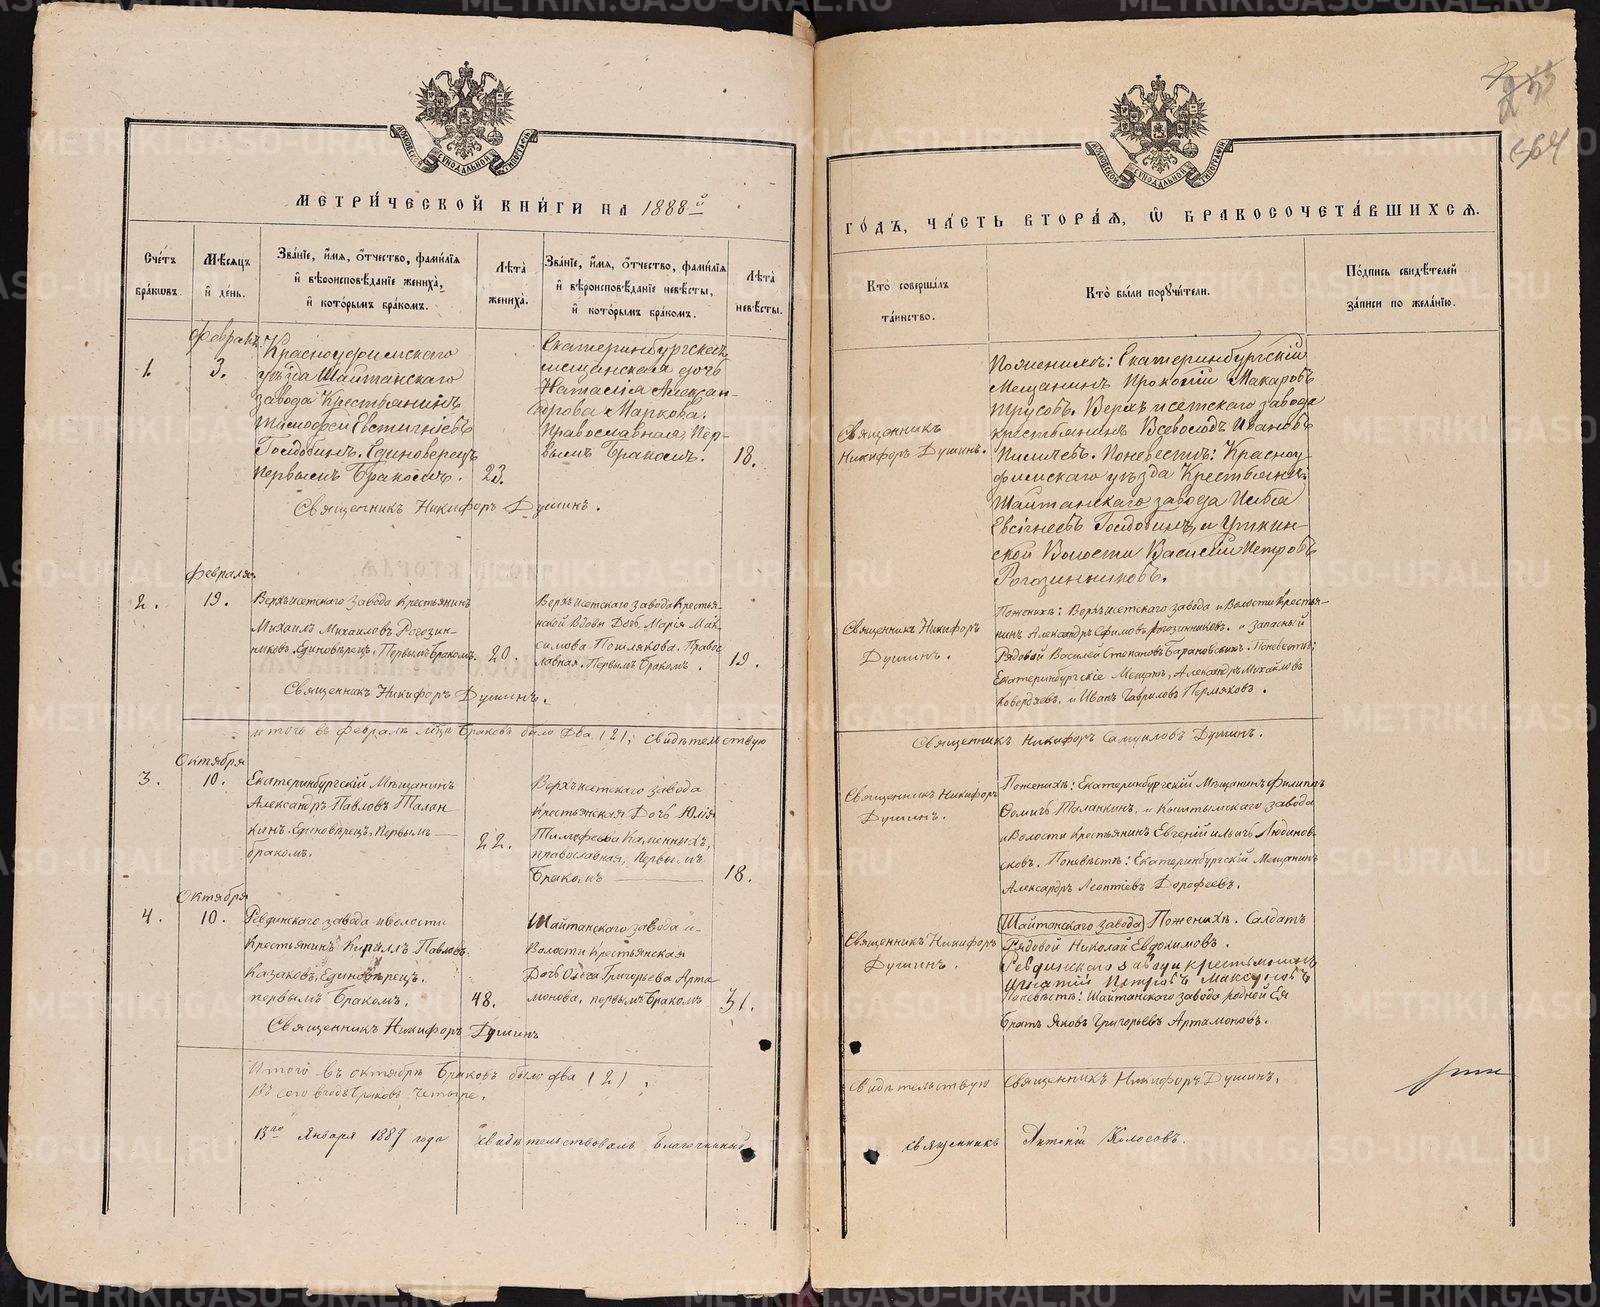 МЕТРИ́ЧЕСКОЙ КНИ́ГИ НА 1888й
ГО́ДЪ, ЧА́СТЬ ВТОРА́Я, Ѿ БРАКОСОЧЕТА́ВШИХСЯ.
Сче́тъ бра́кѡвъ.
Мѣ́сяцъ и҆ де́нь.
Зва́нїе, и҆́мя, ѻ҆́тчество, фами́лїя
и҆ вѣроисповѣ́данїе жениха̀,
и҆ кото́рымъ бра́комъ.
Лѣта̀ жениха̀.
Зва́нїе, и҆́мя, ѻ҆́тчество, фами́лїя
и҆ вѣроисповѣ́данїе невѣ́сты,
и҆ кото́рымъ бра́комъ.
Лѣта̀ невѣ́сты.
Кто̀ соверша́лъ та́инство.
Кто̀ бы́ли порꙋчи́тели.
По́дпись свидѣ́телей
за́писи по жела́нїю.
364
1.
Февраль
3.
Красноуфимскаго
уѣзда Шайтанскаго
завода Крестьянинъ
Тимофей Евстигнѣевъ
Голдобинъ. Единоверецъ
Первымъ Бракомъ.
23.
Екатеринбургская
мещанская дочь
Наталія Алексан-
дрова Маркова.
Православная, Пер-
вымъ Бракомъ.
18.
Священникъ Никифоръ Душинъ.
Священникъ
Никифоръ Душинъ.
Поженихѣ: Екатеринбургскій
Мещанинъ Прокопій Макаровъ
Трусовъ. Верхъисетскаго завода
крестьянинъ Всеволодъ Ивановъ
Поневестѣ: Красноу-
фимскаго уѣзда Крестьянинъ
Шайтанскаго завода
Евсігнеевъ Голдобинъ, и Уткин-
ской Волости Василій Петровъ
Рогозинниковъ.
2.
Февраля.
19.
Верхъисетскаго завода Крестьянинъ
Михаилъ Михаиловъ Рогозин-
никовъ. Единовѣрецъ. Первымъ бракомъ.
20.
Верхъисетскаго завода Крестья-
нской Вдовы Дочь Марія Мак-
симова Пошлякова. Право-
славная. Первымъ Бракомъ.
19.
Священникъ Никифоръ Душинъ.
Священникъ Никифоръ
Душинъ.
Поженихѣ: Верхъисетскаго завода и Волости Крестья-
нинъ Александръ Ефимовъ Рогозинниковъ. и Запасный
Рядовой Василей Степановъ Барановскихъ. Поневестѣ:
Екатеринбургскіе Мещане, Александръ Михайловъ
Ковердяевъ. и Иванъ Гавриловъ Пермяковъ.
Итого въ Февралѣ М-цѣ Браковъ было два (2), свидѣтельствую
Священникъ Никифоръ Самуиловъ Душинъ.
3.
Октября
10.
Екатеринбургскій Мѣщанинъ
Александръ Павловъ Талан
кинъ. Единовѣрецъ, Первымъ
бракомъ.
22.
Верхъисетскаго завода
Крестьянская Дочь Юлія
Тимофеева Каменныхъ,
православная, первымъ
Бракомъ
18.
Священникъ Никифоръ
Душинъ.
Поженихѣ: Екатеринбургскій Мѣщанинъ Филиппъ
Фомичъ Таланкинъ, и Кыштымскаго завода
и Волости крестьянинъ Евгеній Ильичъ Людинов-
сковъ. Поневѣстѣ: Екатеринбургскій Мещанинъ
Александръ Леонтіевъ Дорофеевъ.
4.
Октября
10.
Ревдинскаго завода иволости
Крестьянинъ Кириллъ Павловъ
Казаковъ, Единовѣрецъ.
первымъ Бракомъ.
48.
Шайтанскаго завода и
Волости Крестьянская
Дочь Олега Григорьева Арта
монова, первымъ Бракомъ
31.
Священникъ Никифоръ Душинъ
Священникъ Никифоръ
Душинъ.
Шайтанскаго завода Поженихѣ. Салдатъ
Рядовой Николай Евдокимовъ.
Ревдинскаго завода крестьянинъ
Игнатій Петровъ Максимовъ
Поневѣстѣ: Шайтанскаго завода родной Ея
Братъ Яковъ Григорьевъ Артамоновъ.
Итого въ октябрѣ Браковъ было два (2),
Всего вгодъ Браковъ четыре.
свидѣтельствую Священникъ Никифоръ Душинъ.
13го Января 1889 года свидѣтельствовалъ Благочинный
священникъ Антоній Колосовъ.
METRIKI.GASO-URAL.RU